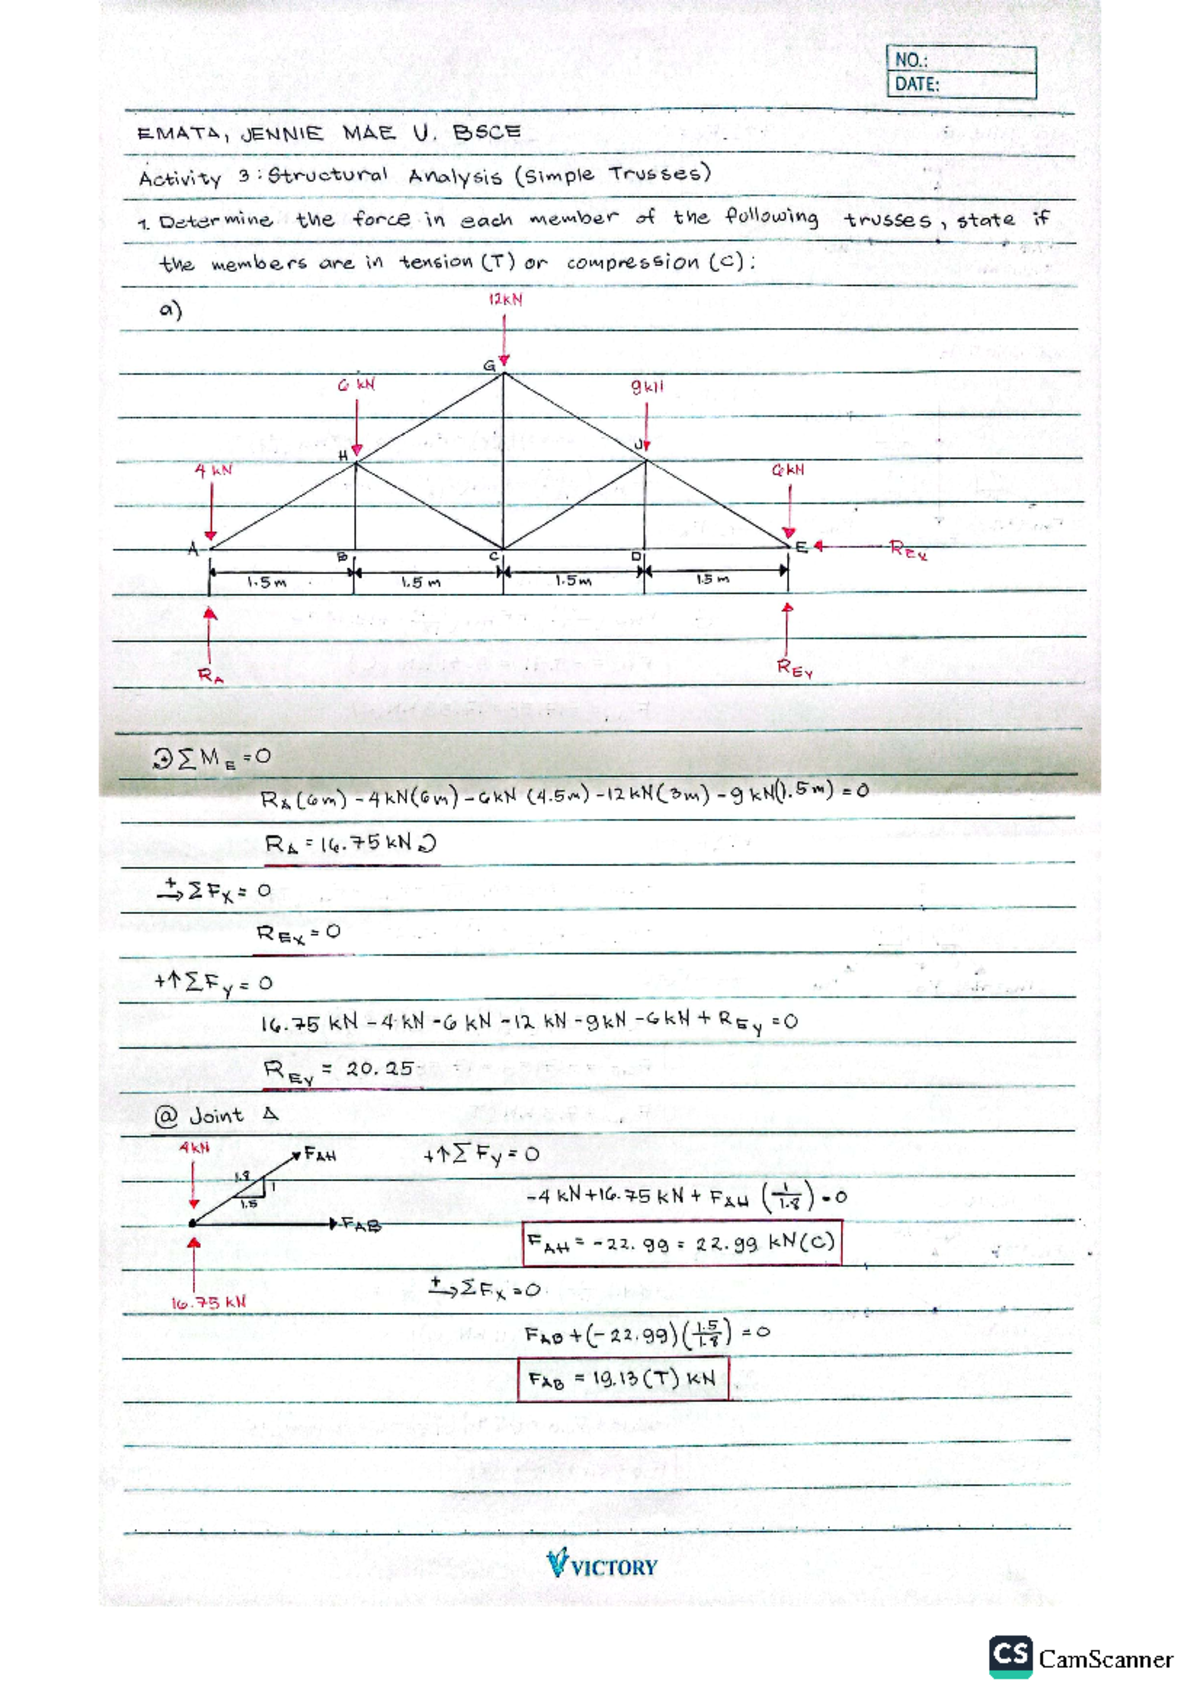 NO.:
DATE:
EMATA, JENNIE MAE U. BSCE
Activity 3: Structural Analysis (Simple Trusses)
1. Determine the force in each member of the following trusses, state if
the members are in tension (T) or compression (C):
a)
12kN
G
6 kN
9kN
H
J
4 kN
6kN
A
B
C
D
E
REX
1.5 m
1.5 m
1.5m
1.5 m
RA
REY
ΣME = 0
RA(6m) - 4kN(6m) - 6kN (4.5m) - 12kN(3m) - 9kN(1.5m) = 0
RA = 16.75kN
+→ ΣFX = 0
REX = 0
+↑ΣFY = 0
16.75 kN - 4 kN - 6 kN - 12 kN - 9kN - 6kN + REY = 0
REY = 20.25
@ Joint A
4kN
FAH
1.8
1
1.5
FAB
16.75 kN
+↑ΣFY = 0
-4 kN + 16.75 kN + FAH (1/1.8) = 0
FAH = -22.99 = 22.99 kN(C)
+→ ΣFX = 0
FAB + (-22.99)(1.5/1.8) = 0
FAB = 19.13 (T) kN
VICTORY
CS CamScanner